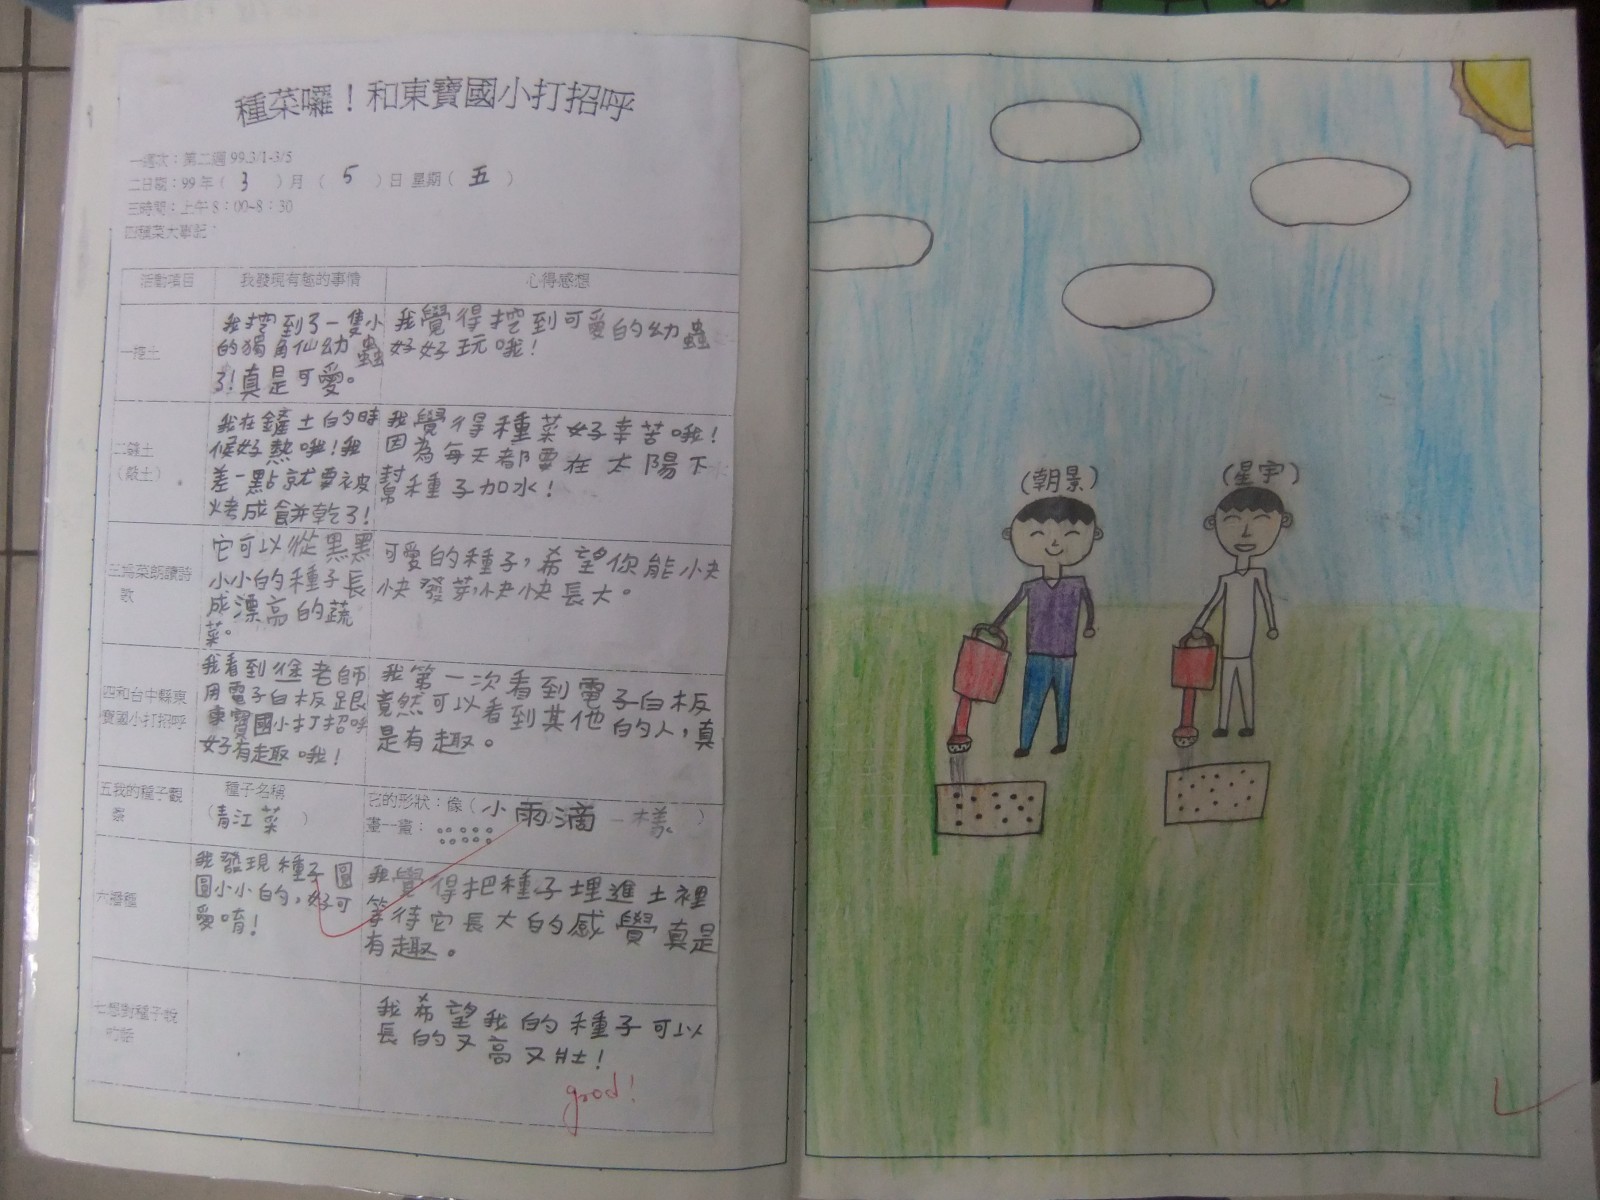 種菜囉！和東寶國小打招呼
一週次：第二週 99.3/1-3/5
二日期：99 年（ 3 ）月（ 5 ）日 星期（ 五 ）
三時間：上午 8：00~8：30
四種菜大事記：
活動項目 我發現有趣的事情 心得感想
一挖土
我挖到了一隻小
的獨角仙幼蟲
了!真是可愛。
我覺得挖到可愛的幼蟲
好好玩哦!
二鏟土
（鬆土）
我在鏟土的時
候好熱哦!我
差一點就要被
烤成餅乾了!
我覺得種菜好辛苦哦!
因為每天都要在太陽下
幫種子加水!
三為菜朗讀詩
歌
它可以從黑黑
小小的種子長
成漂高的蔬
菜。
可愛的種子,希望你能快
快發芽,快快長大。
四和台中縣東
寶國小打招呼
我看到徐老師
用電子白板跟
東寶國小打招呼
好有趣哦!
我第一次看到電子白板
竟然可以看到其他的人,真
是有趣。
五我的種子觀
察
種子名稱
（青江菜 ）
它的形狀：像（小雨滴一樣 ）
畫一畫：
六播種
我發現種子圓
圓小小的,好可
愛唷!
我覺得把種子埋進土裡
等待它長大的感覺真是
有趣。
七想對種子說
的話
我希望我的種子可以
長的又高又壯!
good!
(朝景)
(星宇)